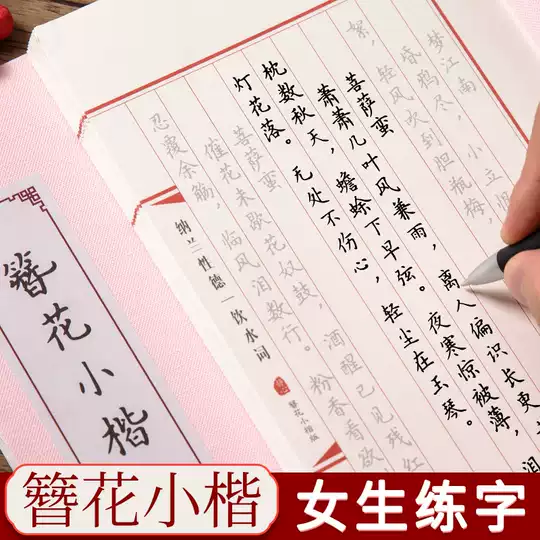 梦江南
昏鸦尽，小立恨
轻风吹到胆瓶梅，
絮，
菩萨蛮
萧萧几叶风兼雨，离人偏识长更
枕数秋天，蟾蜍下早弦。夜寒惊被薄，
灯花落。无处不伤心，轻尘在玉琴。
纳兰性德—饮水词
簪花小楷版
菩萨蛮
催花未歇花奴鼓，酒醒已见残红
忍覆余觞，临风泪数行。粉香看欲
簪花小楷
簪花小楷
女生练字